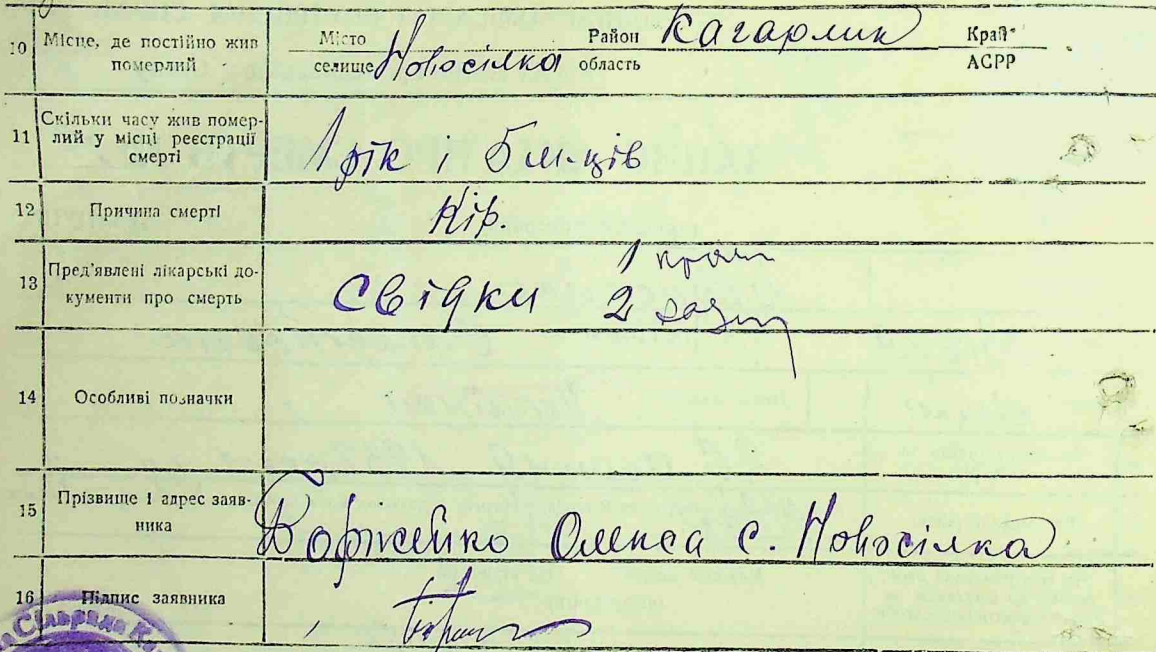 10 Місце, де постійно жив померлий Місто селище Новосілка Район область Кагарлик Край* АСРР
11 Скільки часу жив помер-
лий у місці реєстрації
смерті 1 рік і 5 м-ців
12 Причина смерті Кір.
13 Пред'явлені лікарські до-
кументи про смерть свідки 1
2
14 Особливі позначки
15 Прізвище і адрес заяв-
ника Олекса с. Новосілка
16 Підпис заявника
Сільрада